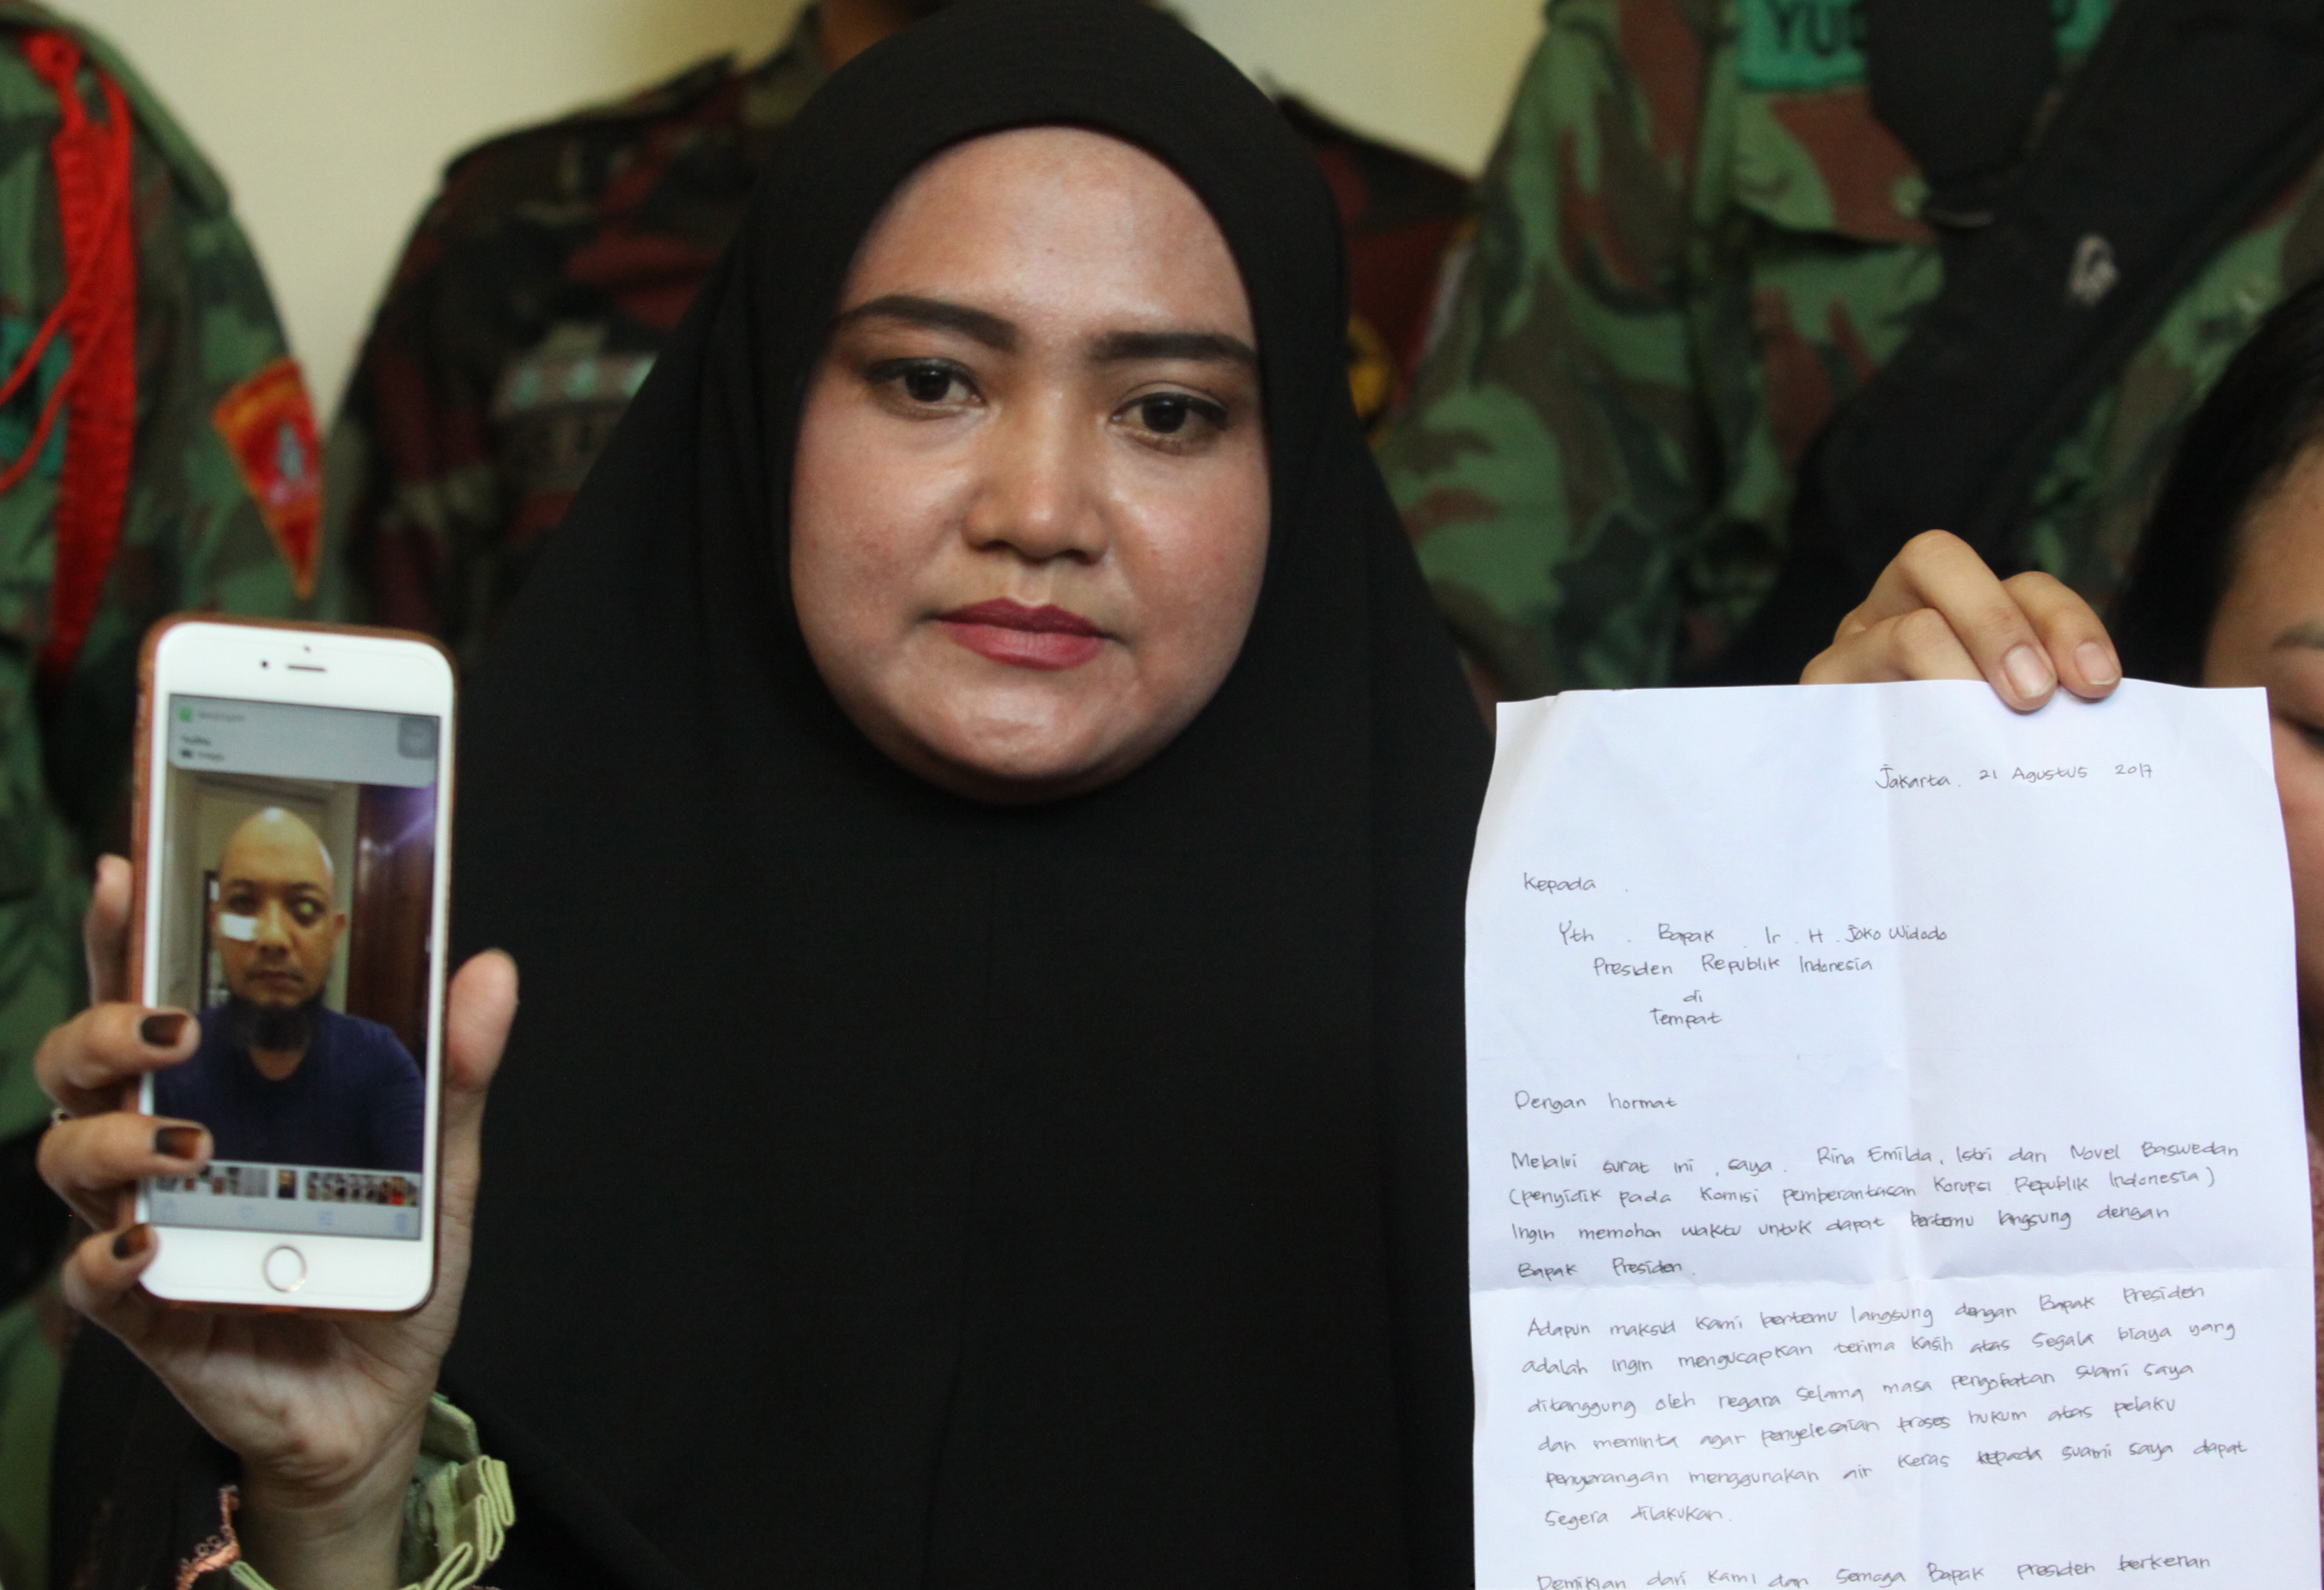 Jakarta. 21 Agustus 2017
Kepada
Yth. Bapak. Ir. H. Joko Widodo
Presiden Republik Indonesia
di
Tempat
Dengan hormat
Melalui surat ini, saya. Rina Emilda, Istri dari Novel Baswedan
(penyidik pada Komisi pemberantasan Korupsi Republik Indonesia)
Ingin memohon waktu untuk dapat bertemu langsung dengan
Bapak Presiden.
Adapun maksud Kami bertemu langsung dengan Bapak Presiden
adalah Ingin mengucapkan terima Kasih atas segala biaya yang
ditanggung oleh negara selama masa pengobatan suami saya
dan meminta agar penyelesaian proses hukum atas pelaku
penyerangan menggunakan air Keras kepada suami saya dapat
Segera dilakukan.
Demikian dari Kami dan semoga Bapak presiden berkenan